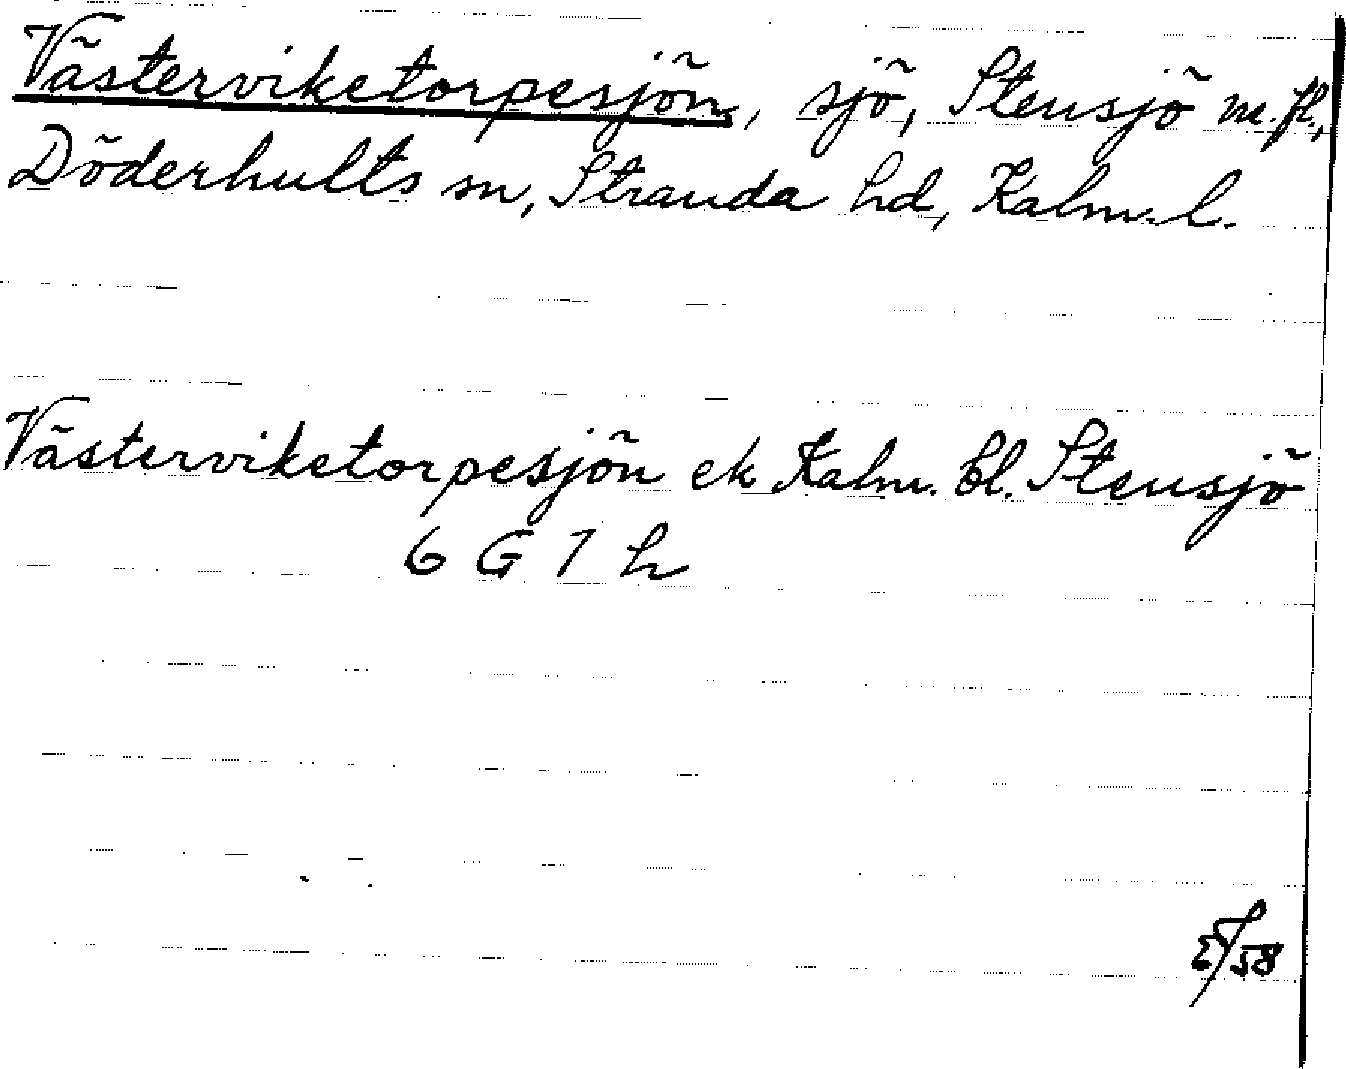 Västerviketorpesjön, sjö, Stensjö m.fl.,
Döderhults sn, Stranda hd, Kalm. l.
Västerviketorpesjön ek Kalm. bl. Stensjö
6 G 7 h